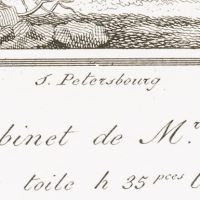 S. Petersbourg
binet de Mr.
toile h 35 pces l